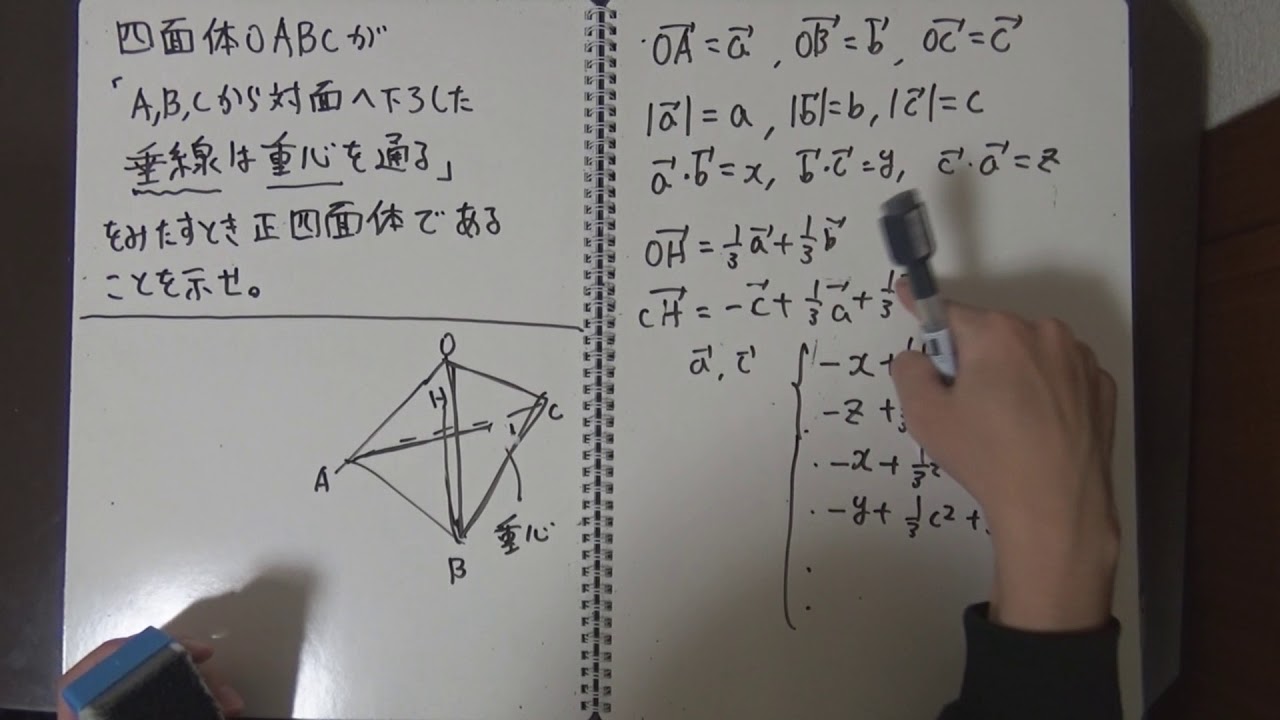 四面体OABCが
「A,B,Cから対面へ下ろした
垂線は重心を通る」
をみたすとき正四面体である
ことを示せ。
O
H
C
A
B
重心
・OA→=a→, OB→=b→, OC→=c→
|a→|=a, |b→|=b, |c→|=c
a→・b→=x, b→・c→=y, c→・a→=z
OH→=1/3a→+1/3b→
CH→=-c→+1/3a→+1/3
a→, c→
-x+
-z+
・-x+1/3
・-y+1/3c²+